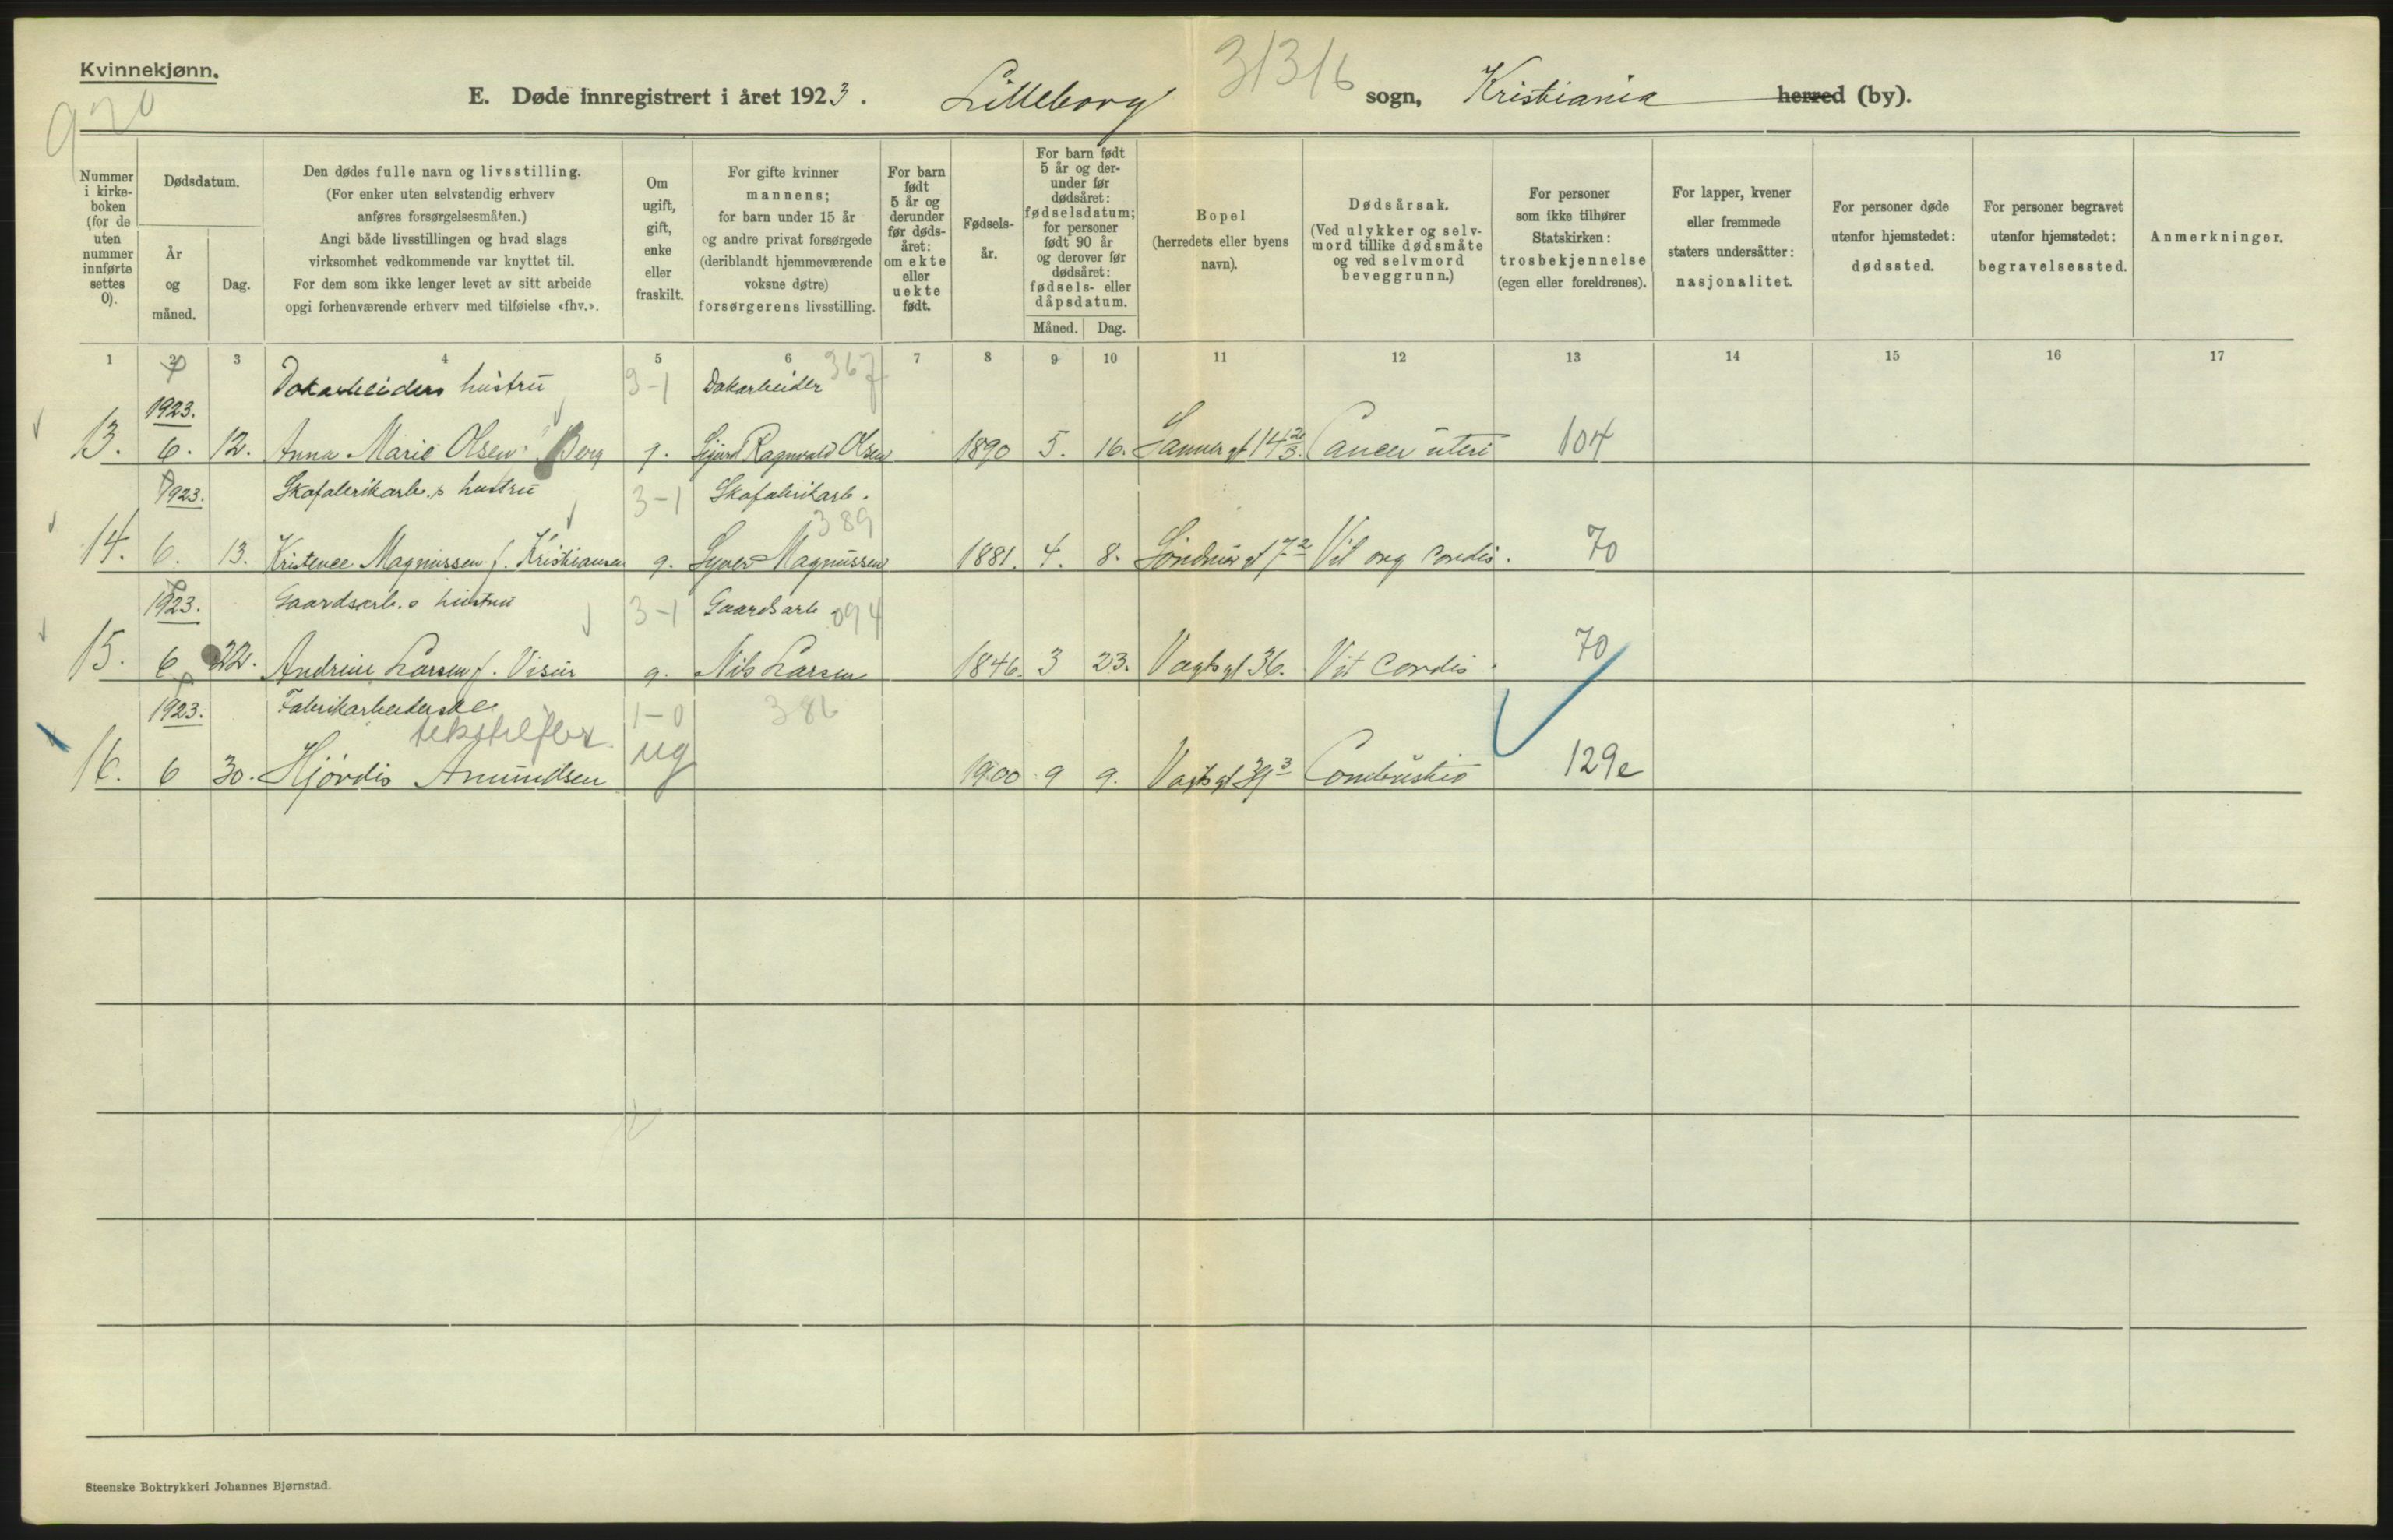 Kvinnekjønn.
920
E. Døde innregistrert i året 1923. Lilleborg 31316 sogn, Kristiania herred (by).
Nummer i kirkeboken (for de uten nummer innførte settes 0).
Dødsdatum.
År og måned.
Dag.
Den dødes fulle navn og livsstilling.
(For enker uten selvstendig erhverv
anføres forsørgelsesmåten.)
Angi både livsstillingen og hvad slags
virksomhet vedkommende var knyttet til.
For dem som ikke lenger levet av sitt arbeide
opgi forhenværende erhverv med tilføielse «fhv.».
Om ugift, gift, enke eller fraskilt.
For gifte kvinner
mannens;
for barn under 15 år
og andre privat forsørgede
(deriblandt hjemmeværende
voksne døtre)
forsørgerens livsstilling.
For barn født 5 år og derunder før dødsåret: om ekte eller uekte født.
Fødselsår.
For barn født 5 år og derunder før dødsåret: fødselsdatum; for personer født 90 år og derover før dødsåret: fødsels- eller dåpsdatum.
Måned. Dag.
Bopel
(herredets eller byens
navn).
Dødsårsak.
(Ved ulykker og selvmord tillike dødsmåte og ved selvmord beveggrunn.)
For personer
som ikke tilhører
Statskirken:
trosbekjennelse
(egen eller foreldrenes).
For lapper, kvener
eller fremmede
staters undersåtter:
nasjonalitet.
For personer døde
utenfor hjemstedet:
dødssted.
For personer begravet
utenfor hjemstedet:
begravelsessted.
Anmerkninger.
1 2 3 4 5 6 7 8 9 10 11 12 13 14 15 16 17
1923. Dokarbeiders hustru 3-1 Dokarbeider 367
13. 6. 12. Anna Marie Olsen Berg g. Sigurd Ragnvald Olsen 1890 5. 16. Sannergt 14 2/3. Cancer uteri 104
1923. Skofabrikarb.s hustru 3-1 Skofabrikarb. 389
14. 6. 13. Kristence Magnussen f. Kristiansen g. Syver Magnussen 1881. 4. 8. 7 2 Vit org cordis. 70
1923. Gaardsarb.s hustru 3-1 Gaardsarb. 094
15. 6 22. Andrine Larsen f. g. Nils Larsen 1846. 3 23. Vogtsgt 36. Vit cordis. 70
1923. Fabrikarbeiderske tekstilfbr. 1-0 386
16. 6 30. Hjørdis Amundsen ug 1900 9 9. Vogtsgt 39 3 Combustio 129e
Steenske Boktrykkeri Johannes Bjørnstad.